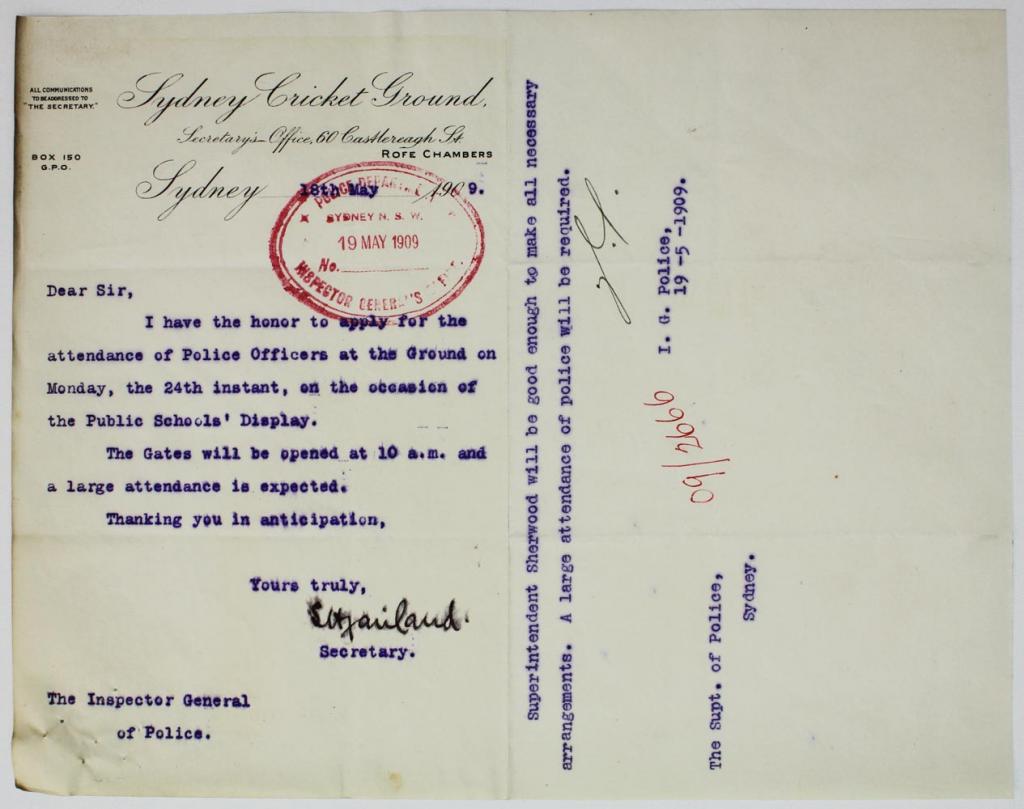 ALL COMMUNICATIONS
TO BE ADDRESSED TO
"THE SECRETARY."
BOX 150
G.P.O.
Sydney Cricket Ground.
Secretary's Office, 60 Castlereagh St.
ROFE CHAMBERS
Sydney 18th May 1909.
POLICE DEPARTMENT
SYDNEY N. S. W.
19 MAY 1909
No.
INSPECTOR GENERAL'S OFFICE.
Dear Sir,
I have the honor to apply for the
attendance of Police Officers at the Ground on
Monday, the 24th instant, on the occasion of
the Public Schools' Display.
The Gates will be opened at 10 a.m. and
a large attendance is expected.
Thanking you in anticipation,
Yours truly,
Secretary.
The Inspector General
of Police.
Superintendent Sherwood will be good enough to make all necessary
arrangements. A large attendance of police will be required.
I. G. Police,
19 -5 -1909.
09/2666
The Supt. of Police,
Sydney.